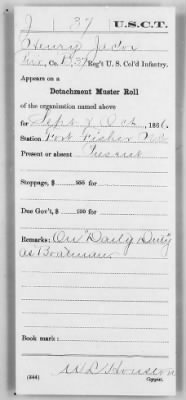 J 37 U.S.C.T.
Henry Jector
Co. K, 37 Reg't U. S. Col'd Infantry.
Appears on a
Detachment Muster Roll
of the organization named above
for Sept & Oct, 1866.
Station Fort Fisher N.C.
Present or absent Present
Stoppage, $ 100 for
Due Gov't, $ 100 for
Remarks: On "Daily Duty
as Boatman.
Book mark:
(344) Copyist.